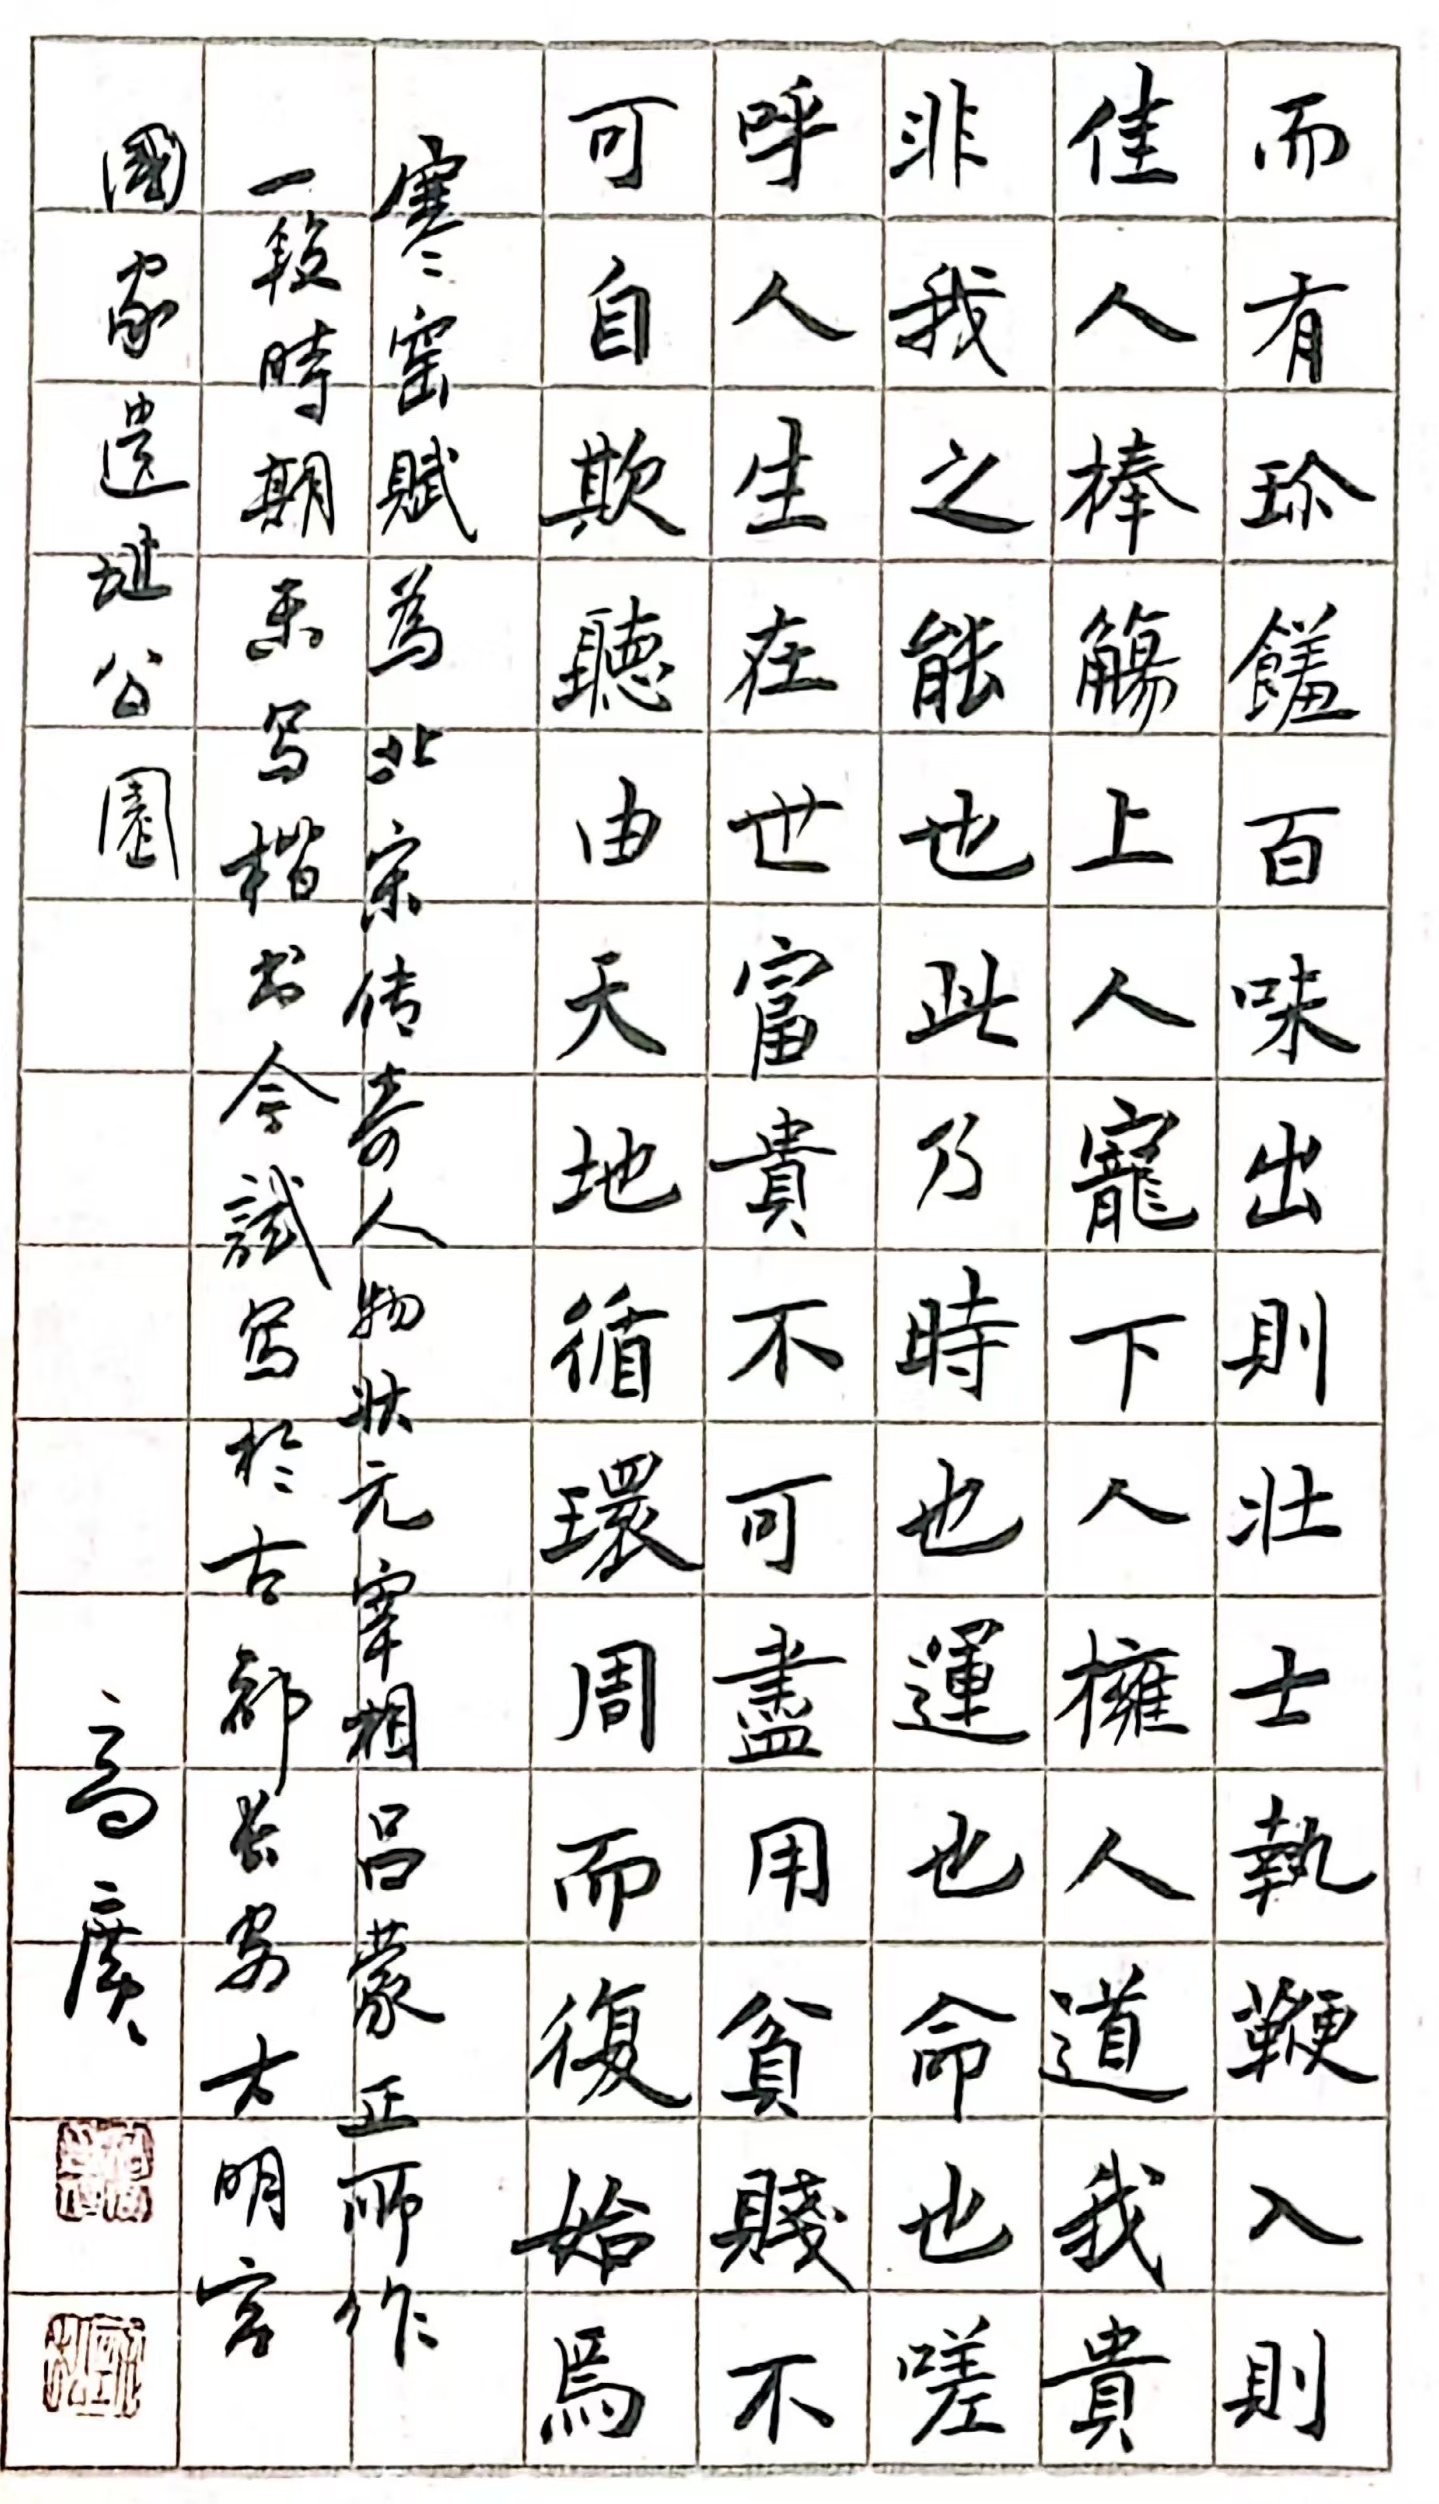 而有珎饈百味出則壯士執鞭入則
佳人棒觴上人寵下人擁人道我貴
非我之能也此乃時也運也命也嗟
呼人生在世富貴不可盡用貧賤不
可自欺聽由天地循環周而復始焉
寒窑賦為北宋传奇人物状元宰相吕蒙正所作
一段時期未写楷书今試写於古都长安大明宫
國家遺址公園
高廣